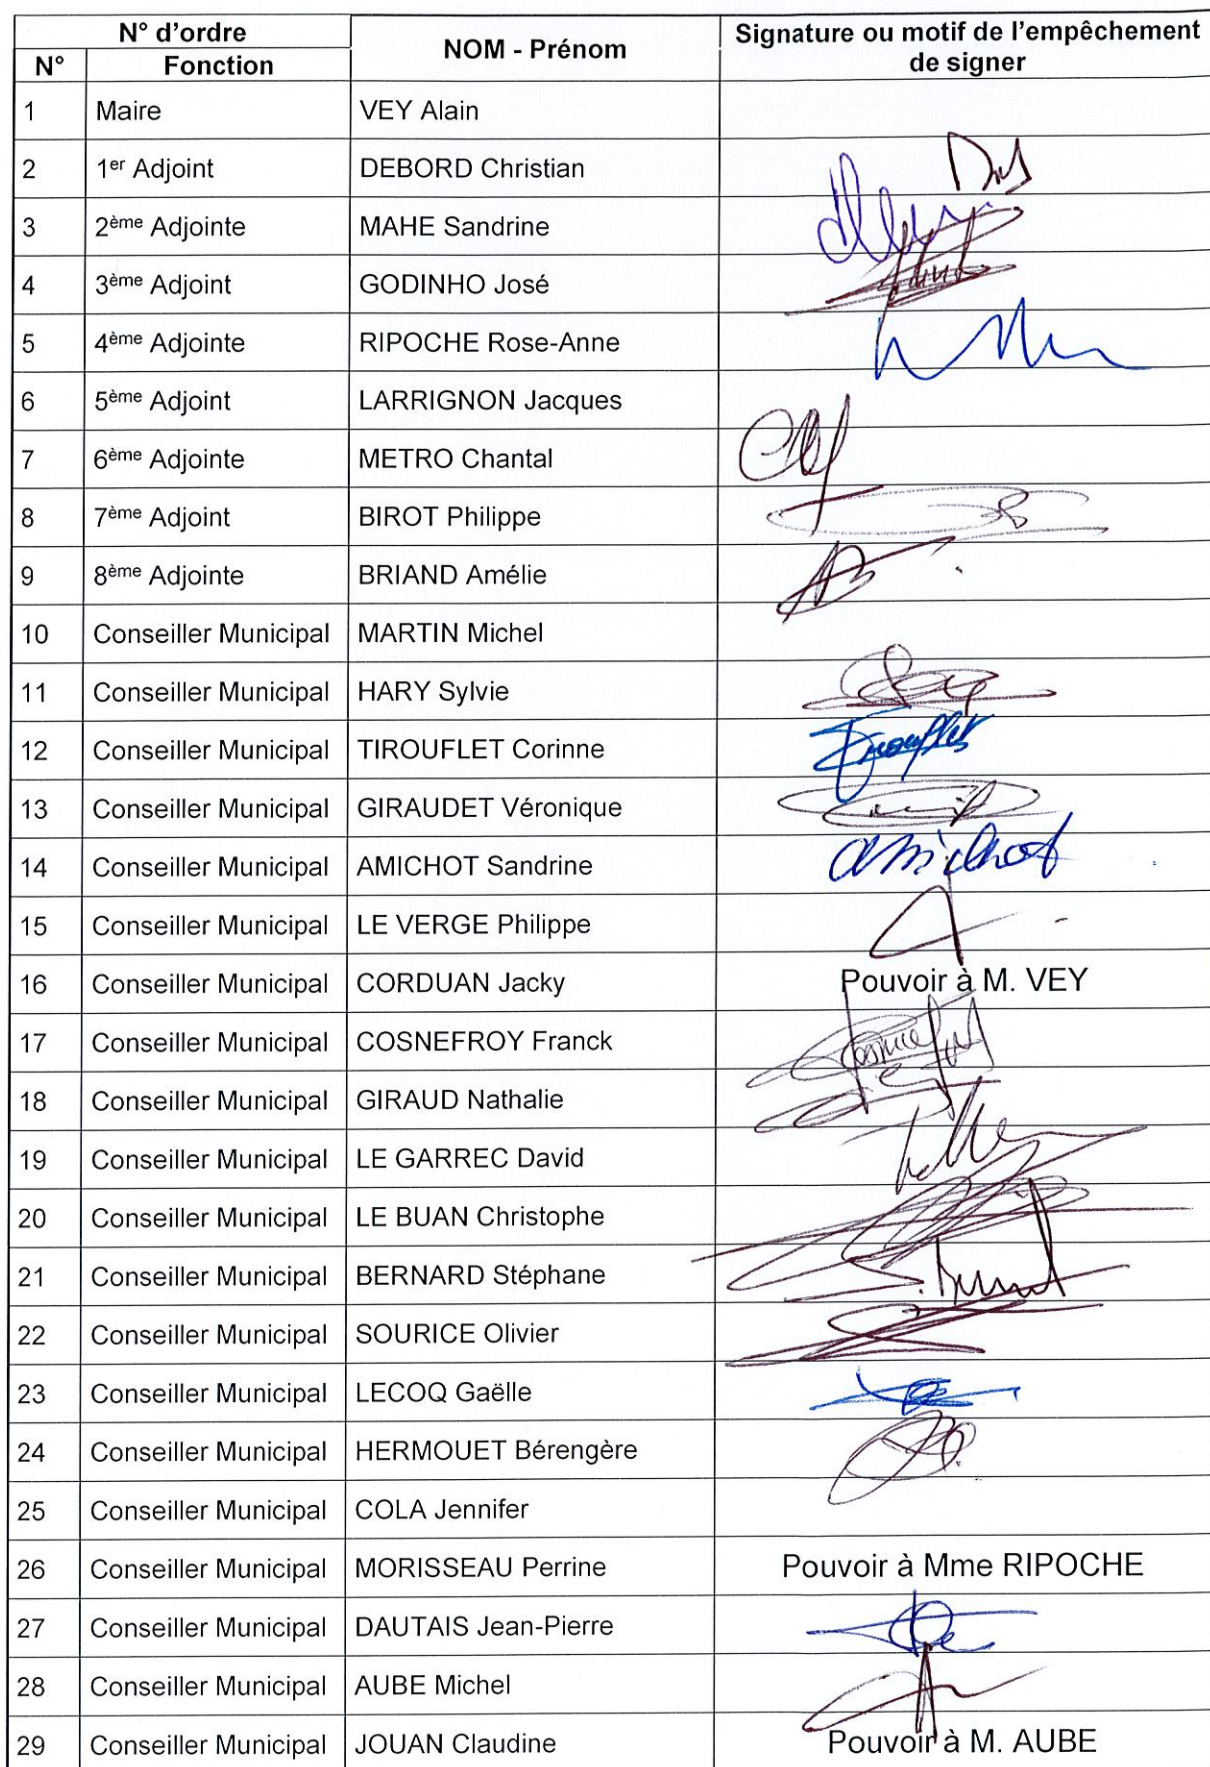 N° d'ordre
NOM - Prénom
Signature ou motif de l'empêchement
de signer
N° Fonction
1 Maire VEY Alain
2 1er Adjoint DEBORD Christian
3 2ème Adjointe MAHE Sandrine
4 3ème Adjoint GODINHO José
5 4ème Adjointe RIPOCHE Rose-Anne
6 5ème Adjoint LARRIGNON Jacques
7 6ème Adjointe METRO Chantal
8 7ème Adjoint BIROT Philippe
9 8ème Adjointe BRIAND Amélie
10 Conseiller Municipal MARTIN Michel
11 Conseiller Municipal HARY Sylvie
12 Conseiller Municipal TIROUFLET Corinne
13 Conseiller Municipal GIRAUDET Véronique
14 Conseiller Municipal AMICHOT Sandrine amichot
15 Conseiller Municipal LE VERGE Philippe
16 Conseiller Municipal CORDUAN Jacky Pouvoir à M. VEY
17 Conseiller Municipal COSNEFROY Franck
18 Conseiller Municipal GIRAUD Nathalie
19 Conseiller Municipal LE GARREC David
20 Conseiller Municipal LE BUAN Christophe
21 Conseiller Municipal BERNARD Stéphane
22 Conseiller Municipal SOURICE Olivier
23 Conseiller Municipal LECOQ Gaëlle
24 Conseiller Municipal HERMOUET Bérengère
25 Conseiller Municipal COLA Jennifer
26 Conseiller Municipal MORISSEAU Perrine Pouvoir à Mme RIPOCHE
27 Conseiller Municipal DAUTAIS Jean-Pierre
28 Conseiller Municipal AUBE Michel
29 Conseiller Municipal JOUAN Claudine Pouvoir à M. AUBE